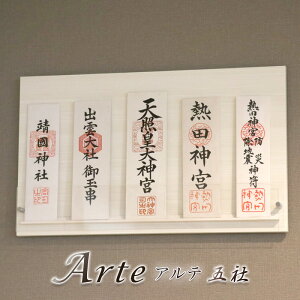 靖國神社
出雲大社御玉串
天照皇大神宮
熱田神宮
熱田神宮防災
除地震神符
Arte アルテ 五社